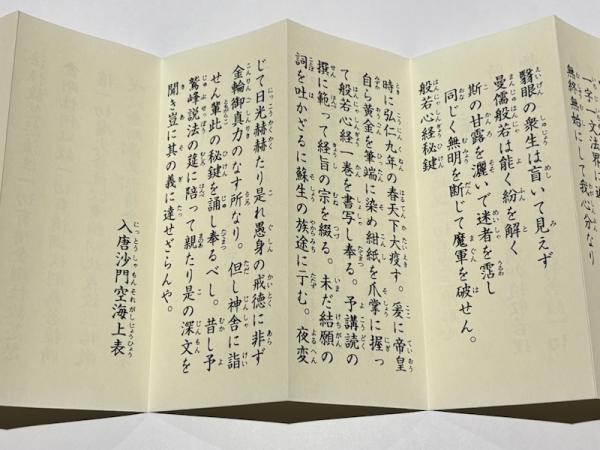 一字一文法界に遍
無終無始にして我心分なり
翳眼の衆生は盲いて見えず
曼儒般若は能く紛を解く
斯の甘露を灑いで迷者を霑し
同じく無明を断じて魔軍を破せん。
般若心経秘鍵
時に弘仁九年の春天下大疫す。爰に帝皇
自ら黄金を筆端に染め紺紙を爪掌に握っ
て般若心経一巻を書写し奉る。予講読の
撰に範って経旨の宗を綴る。未だ結願の
詞を吐かざるに蘇生の族途に亍む。夜変
じて日光赫赫たり是れ愚身の戒徳に非ず
金輪御真力のなす所なり。但し神舎に詣
せん輩此の秘鍵を誦し奉るべし。昔し予
鷲峰説法の莚に陪って親たり是の深文を
聞き豈に其の義に達せざらんや。
入唐沙門空海上表